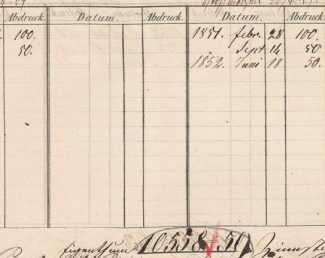 Abdruck. Datum. Abdruck. Datum. Abdruck.
100. 1851. febr. 28 100.
50. Sept 16 50
1852. Juni 18 50.
Eigenthum 10558 + 50